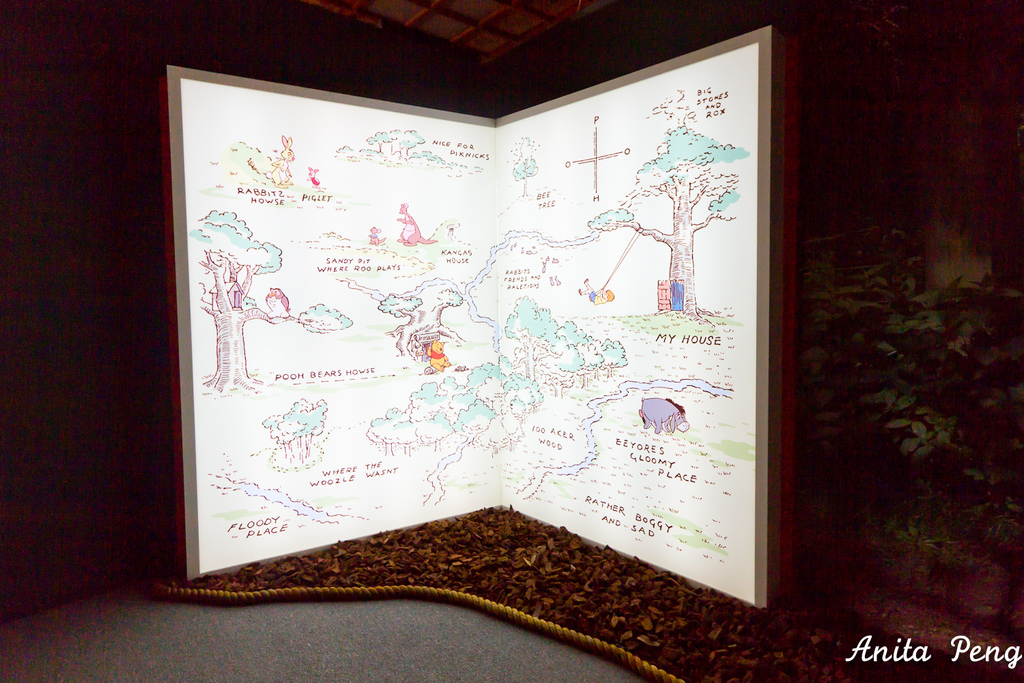 NICE FOR
PIKNICKS
RABBITS
HOWSE
PIGLET
SANDY PIT
WHERE ROO PLAYS
KANGAS
HOUSE
POOH BEARS HOWSE
WHERE THE
WOOZLE WASNT
FLOODY
PLACE
BIG
STONES
AND
ROX
P
O O
H
BEE
TREE
RABBITS
FRENDS AND
RALETIONS
MY HOUSE
100 ACER
WOOD
EEYORES
GLOOMY
PLACE
RATHER BOGGY
AND SAD
Anita Peng